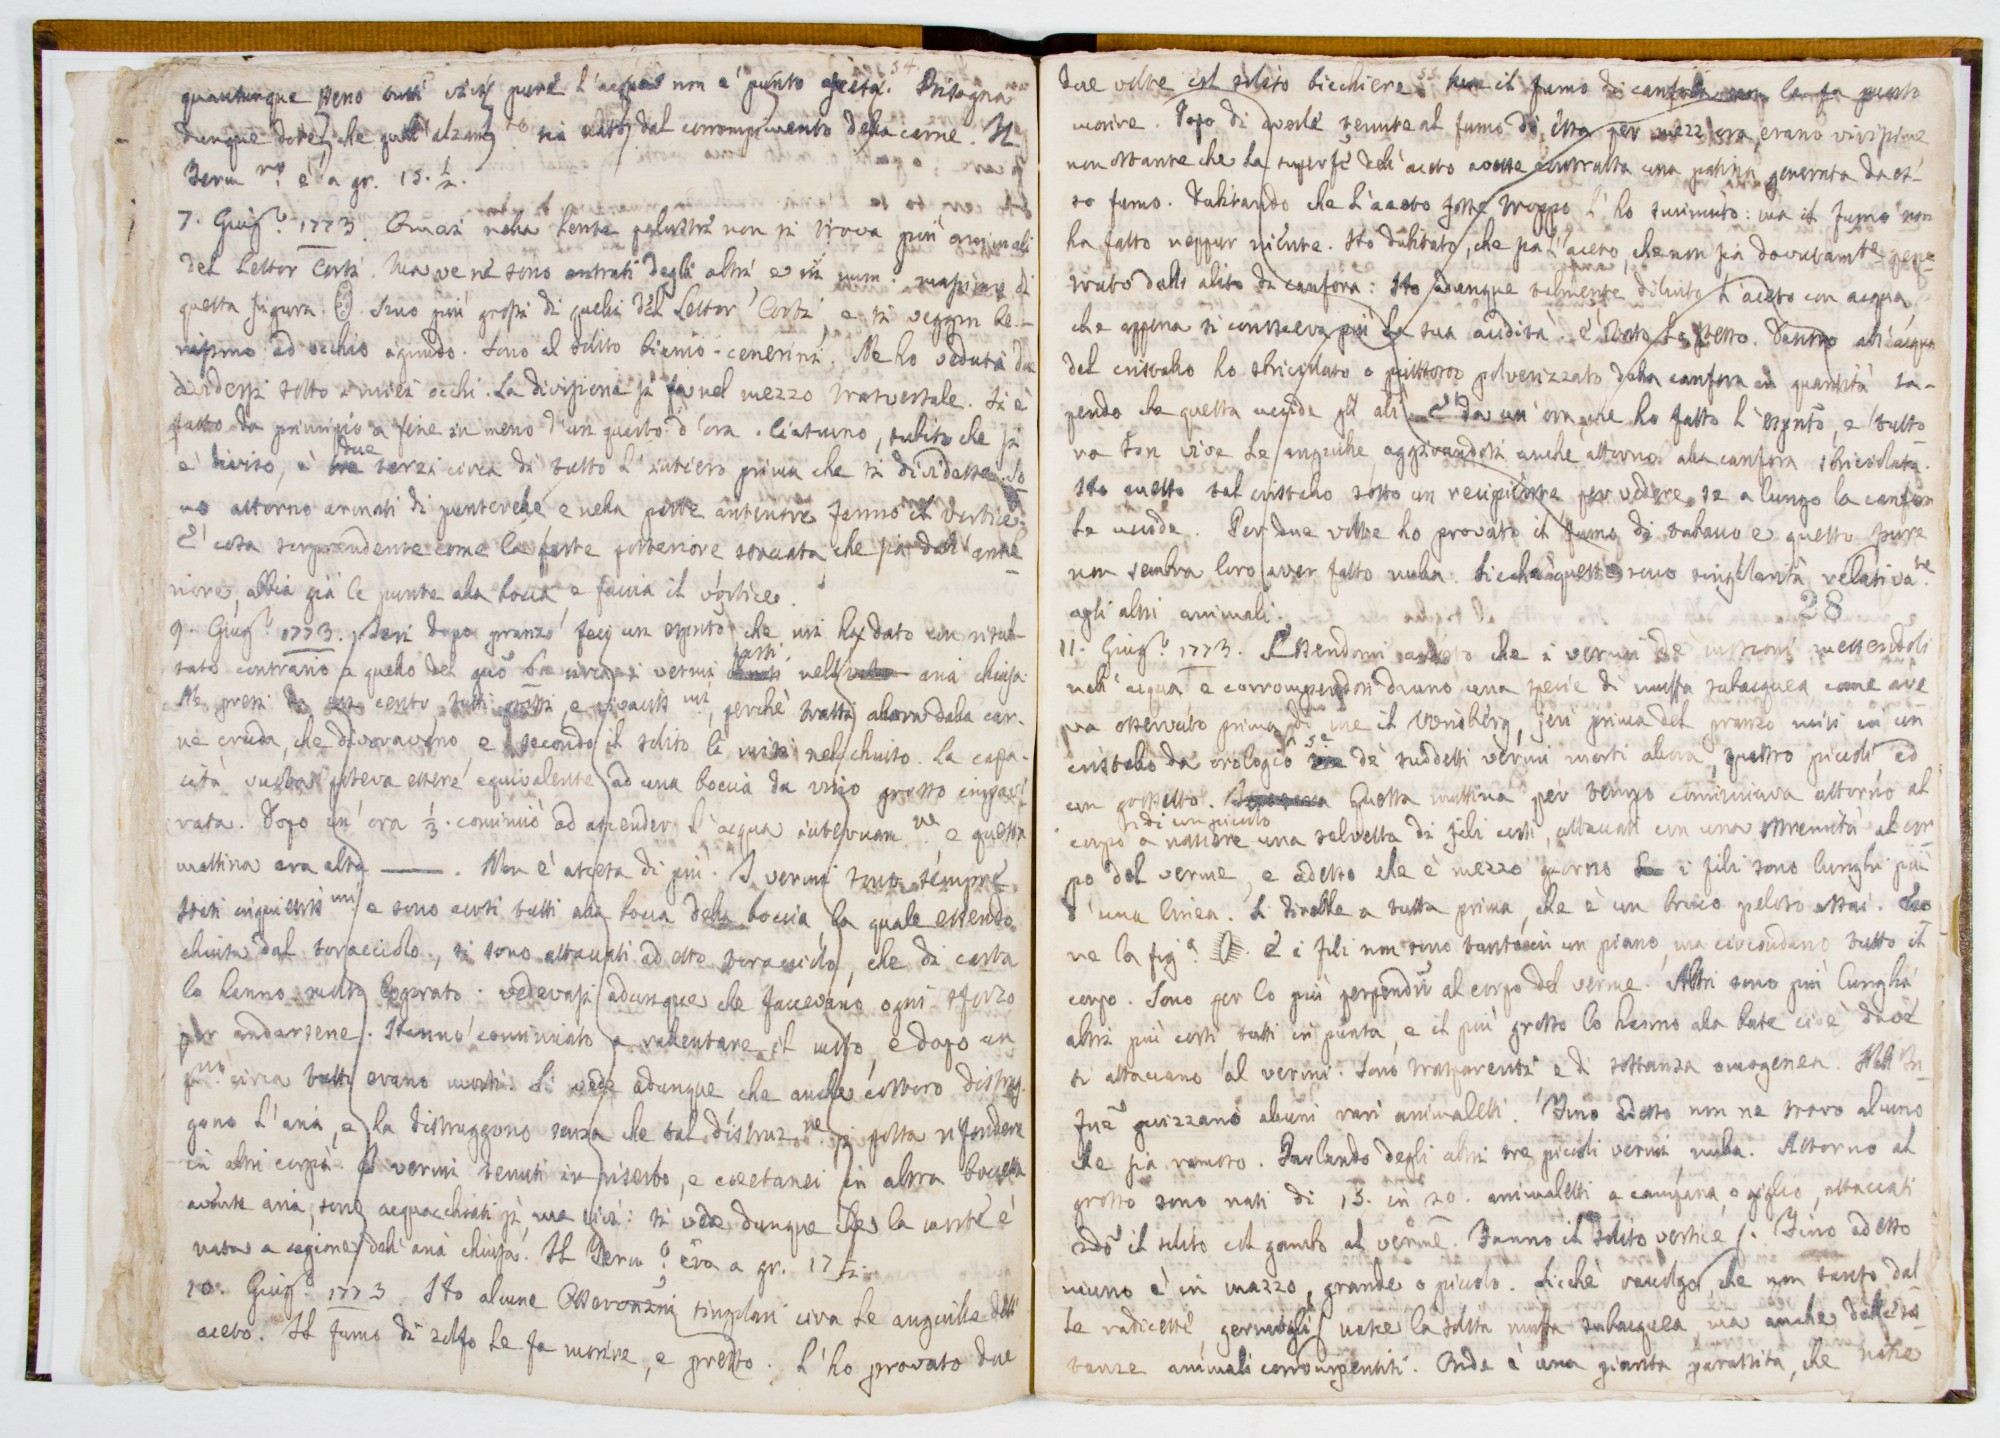 54
quantunque sieno tutti vivi pure l'acqua non è punto ascesa. Bisogna
dunque dire che quell'alzam.to sia nato dal corrompimento della carne. Il
Term.ro è a gr. 15. 1/2.
7. Giug.o 1773. Quasi nella lente palustre non si trova più animali
del Lettor Corti. Ma ve ne sono entrati degli altri, e in num. massimo di
questa figura. Sono più grossi di quelli del Lettor Corti, e si veggon be-
nissimo ad occhio ignudo. Sono al solito bianco-cenerini. Ne ho veduti due
dividersi sotto i miei occhi. La divisione si fa nel mezzo trasversale. Si è
fatto da principio a fine in meno d'un quarto d'ora. Ciascuno, subito che si
è diviso, è due terzi circa di tutto l'intiero prima che si dividesse. So-
no attorno armati di punterelle, e nella parte anteriore fanno il vortice.
È cosa sorprendente come la parte posteriore staccata che sia dall'ante-
riore, abbia già le punte alla bocca, e faccia il vortice.
9. Giug.o 1773. Jeri dopo pranzo feci un esprto che mi ha dato un risul-
tato contrario a quello del circa i vermi nell' aria chiusa.
Ne presi cento, tutti grossi, e vivacissmi, perchè tratti allora dalla car-
ne cruda, che divoravano, e secondo il solito li misi nel chiuso. La capa-
cità vuota poteva essere equivalente ad una boccia da vino grosso
Dopo un'ora 1/3. cominciò ad ascender l'acqua internam.te e questa
mattina era alta ——. Non è ascesa di più. I vermi sono sempre
stati inquietissmi e sono accorsi tutti alla bocca della boccia, la quale essendo
chiusa dal turacciolo, si sono attaccati ad esso turacciolo, che di carta
lo hanno Vedevasi adunque che facevano ogni sforzo
per andarsene. Hanno cominciato a rallentare il moto, e dopo un
circa tutti erano morti. Si vede adunque che anche costoro distrug-
gono l'aria, e la distruggono senza che tal distruz.ne si possa rifondere
in altri corpi. I vermi tenuti in riserbo, e coetanei in altra boccetta
avente aria, sono acquacchiati sì, ma vivi: si vede dunque che la morte è
nata a cagione dell'aria chiusa. Il Term.o era a gr. 17 1/2.
10. Giug.o 1773 Ho alcune Osservazni singolari circa le anguille dell'
aceto. Il fumo di zolfo le fa morire, e presto. L'ho provato due
55
due volte col solito bicchiere. il fumo di canfora non le fa punto
morire. Dopo di averle tenute al fumo di essa per mezz'ora, erano vivissime
non ostante che la superfe dell'aceto avesse contratta una patina generata da es-
so fumo. Dubitando che l'aceto fosse troppo l'ho sminuito: ma il fumo non
ha fatto neppur niente. Ho dubitato, che sia l'aceto, che non sia dovutamte pene-
trato dall'alito di canfora: Ho adunque talmente diluito l'aceto con acqua,
che appena si conosceva più la sua acidità. È stato lo stesso. Dentro all'acqua
del cristallo ho sbriciolato o piuttosto polverizzato della canfora in quantità sa-
pendo che questa uccide gli altri. È da un'ora che ho fatto l'esprto, e tutto-
ra son vive le anguille, aggirandosi anche attorno alla canfora sbriciolata.
Ho messo tal cristallo sotto un recipiente per vedere se a lungo la canfora
le uccide. Per due volte ho provato il fumo di tabacco e questo pure
non sembra loro aver fatto nulla. Sicchè queste sono singolarità relativate
agli altri animali.
28
11. Giug.o 1773. Essendomi che i vermi de' mosconi mettendoli
nell'acqua e corrompendosi danno una specie di muffa subacquea come ave-
va osservato prima di me il Vrisberg, jeri prima del pranzo misi in un
cristallo da orologio de' suddetti vermi morti allora, quattro piccoli ed
un grossetto. Questa mattina per tempo cominciava attorno al
corpo di un piccolo a nascere una selvetta di fili corti, attaccati con una estremità al cor-
po del verme, e adesso che è mezzo giorno i fili sono lunghi più
d'una linea. Si direbbe a tutta prima, che è un bruco peloso assai.
ne la fig.a E i fili non sono tanto in un piano, ma circondano tutto il
corpo. Sono per lo più perpendri al corpo del verme. Altri sono più lunghi
altri più corti tutti in punta, e il più grosso lo hanno alla base cioè dove
si attaccano al verme. Sono trasparenti e di sostanza omogenea. Nell'In-
fue guizzano alcuni rari animaletti. Fino adesso non ne trovo alcuno
che sia ramoso. Parlando degli altri tre piccoli vermi nulla. Attorno al
grosso sono nati di 15. in 20. animaletti a campana, o giglio, attaccati
sedo il solito col gambo al verme. Fanno il solito vortice. Fino adesso
niuno è in mazzo, grande o piccolo. Sicchè raccolgo, che non tanto dal-
le radicette germogli nasce la solita muffa subacquea ma anche dalle so-
stanze animali corrompentisi. Onde è una pianta parassita, che nasce